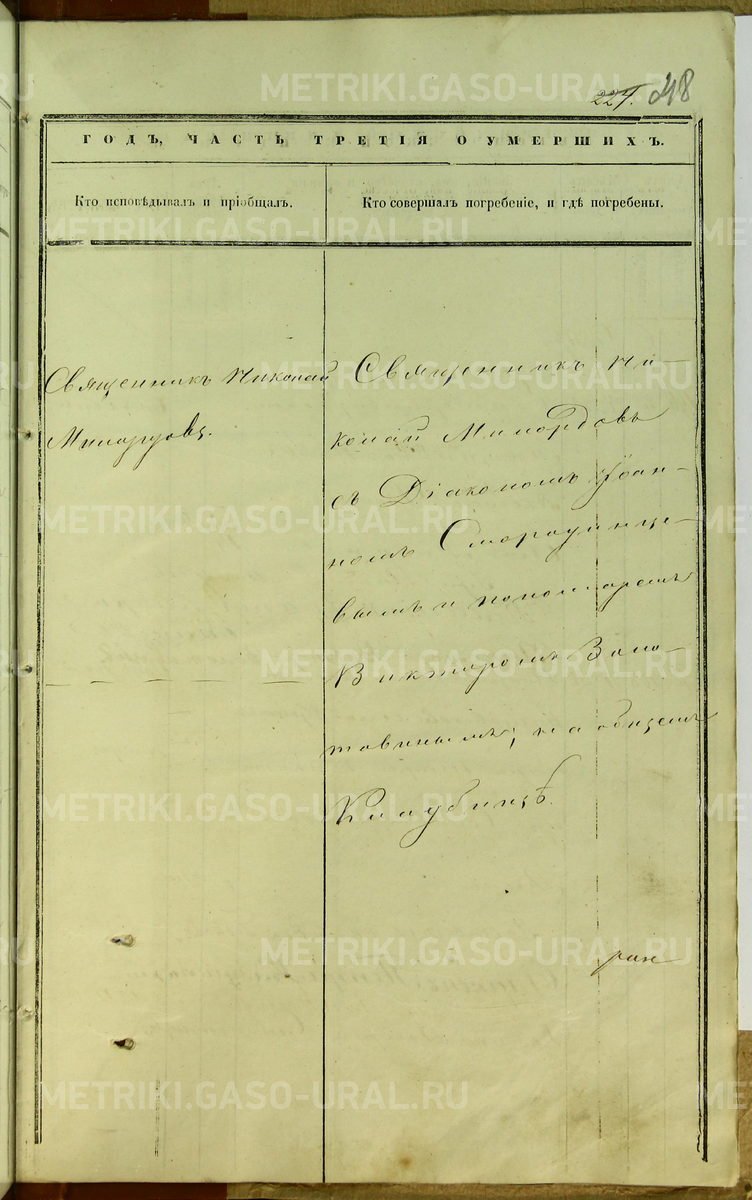 224. 248
ГОДЪ, ЧАСТЬ ТРЕТІЯ О УМЕРШИХЪ.
Кто исповѣдывалъ и пріобщалъ.
Кто совершалъ погребеніе, и гдѣ погребены.
Священникъ Николай
Милордовъ.
Священникъ Ни-
колай Милордовъ
съ Діакономъ Іоан-
номъ Смородинце-
вымъ и пономаремъ
Викторомъ Золо-
товинымъ, на общемъ
Кладбищѣ.
METRIKI.GASO-URAL.RU